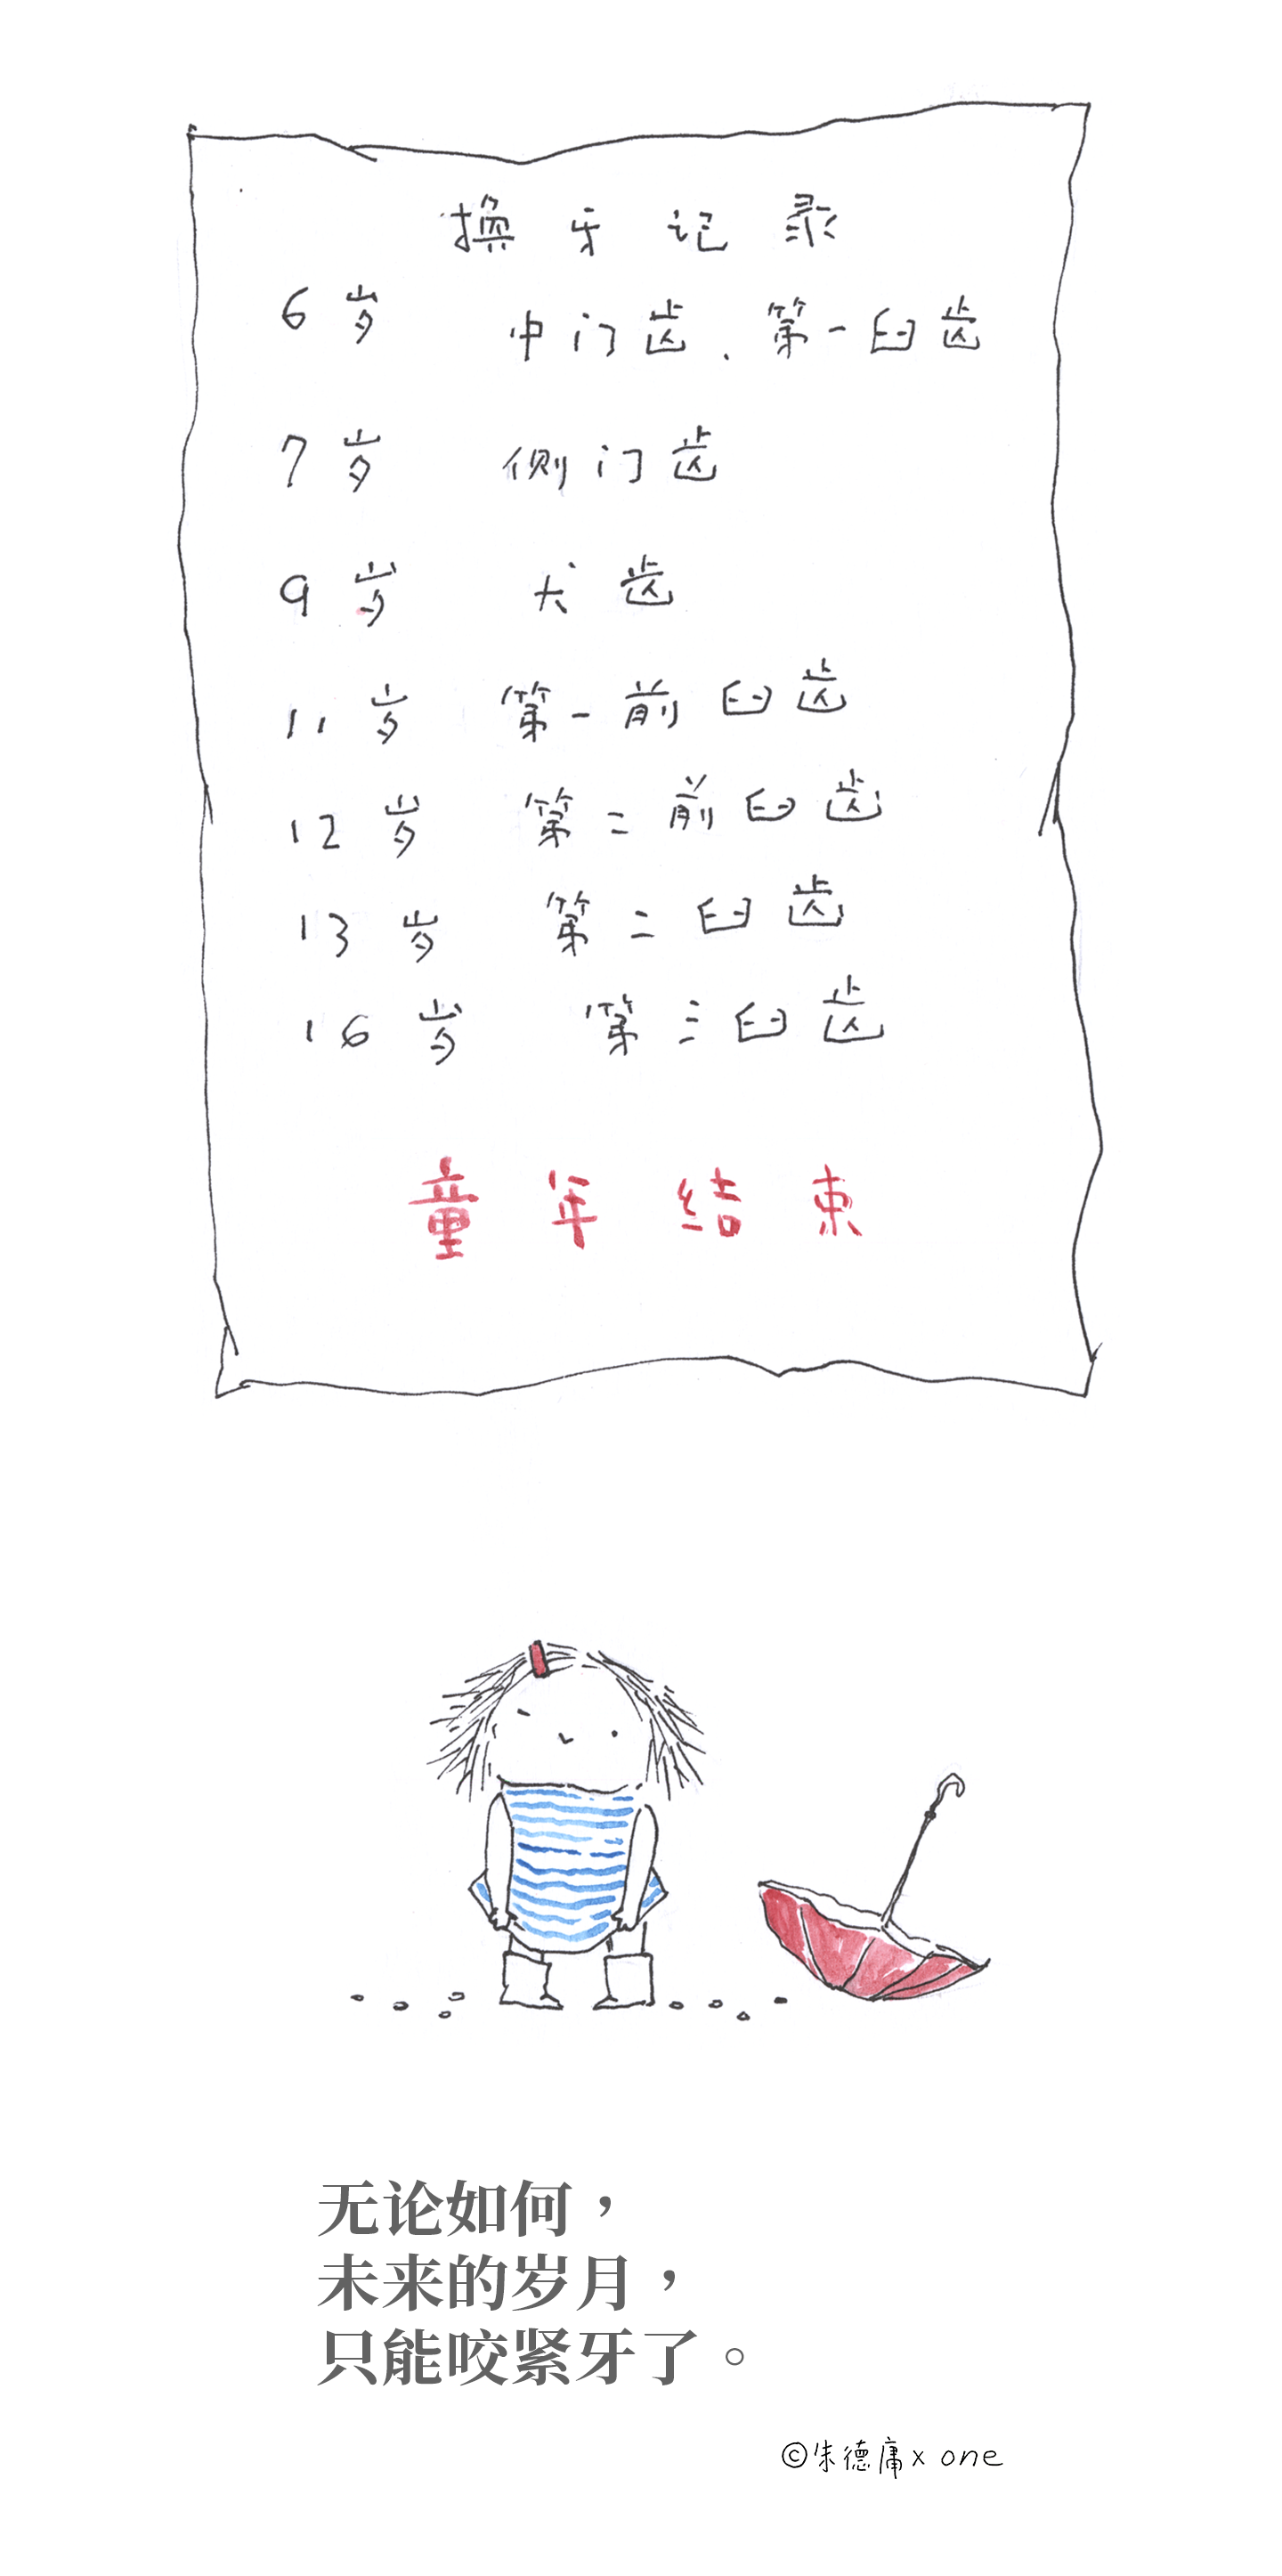 换牙记录
6岁 中门齿、第一臼齿
7岁 侧门齿
9岁 犬齿
11岁 第一前臼齿
12岁 第二前臼齿
13岁 第二臼齿
16岁 第三臼齿
童年结束
无论如何，
未来的岁月，
只能咬紧牙了。
©朱德庸x one